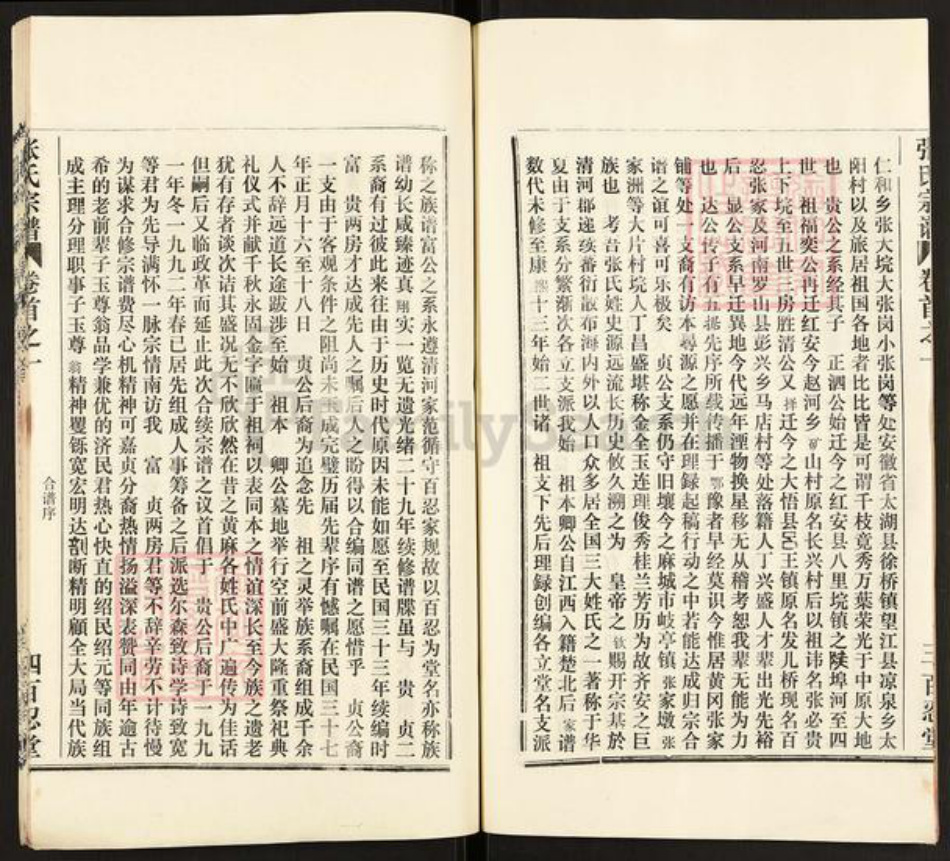 张氏宗谱 卷首之一 三 百忍堂
仁和乡张大垸大张岗小张岗等处安徽省太湖县徐桥镇望江县凉泉乡太
阳村以及旅居祖国各地者比比皆是可谓千枝竟秀万葉荣光于中原大地
也 贵公之系经其子 正泗公始迁今之红安县八里垸镇之陡埠河至四
世 祖福奕公再迁红安今赵河乡矿山村原名长兴村后以祖讳名张必贵
上下垸至五世三房胜清公又择迁今之大悟县吕王镇原名发儿桥现名百
忍张家及河南罗山县彭兴乡马店村等处落籍人丁兴盛人才辈出光先裕
后 显公支系早迁異地今代远年湮物换星移无从稽考恕我辈无能为力
也 达公传子有五据先序所载传播于鄂豫者早经莫识今惟居黄冈张家
铺等处一支裔有访本尋源之愿并在理録起稿行动之中若能达成归宗合
谱之谊可喜可乐极矣 贞公支系仍守旧壤今之麻城市岐亭镇张家墩张
家洲等大片村垸人丁昌盛堪称金全玉连理俊秀桂兰芳历为故齐安之巨
族也 考吾张氏姓史源远流长历史攸久溯之为 皇帝之 钦赐开宗基於
清河郡递续蕃衍散布海内外以人口众多居全国三大姓氏之一著称于华
夏由于支系分繁渐次各立支派我始 祖本卿公自江西入籍楚北后家谱
数代未修至康熙十三年始二世诸 祖支下先后理録创编各立堂名支派
称之族谱富公之系永遵清河家范循守百忍家规故以百忍为堂名亦称族
谱幼长咸臻迹真 翔实一览无遗光绪二十九年续修谱牒虽与 贵 贞二
系裔有过彼此来往由于历史时代原因未能如愿至民国三十三年续编时
富 贵两房才达成先人之嘱后人之盼得以合编同谱之愿惜乎 贞公裔
一支由于客观条件之阻尚未玉成完璧历届先辈序有憾嘱在民国三十七
年正月十六至十八日 贞公后裔为追念先 祖之灵举族系裔组成千余
人不辞远道长途跋涉至始 祖本 卿公墓地举行空前盛大隆重祭祀典
礼仪式并献千秋永固金字匾于祖祠以表同本之情谊深长至今族之遗老
犹有存者谈次诘其盛况无不欣欣然在昔之黄麻各姓氏中广遍传为佳话
但嗣后又临政革而延止此次合续宗谱之议首倡于 贵公后裔于一九九
一年冬一九九二年春已居先组成人事筹备之后派选尔森致诗学诗致宽
等君为先导满怀一脉宗情南访我 富 贞两房君等不辞辛劳不计待慢
为谋求合修宗谱费尽心机精神可嘉贞分裔热情扬溢深表赞同由年逾古
希的老前辈子玉尊翁品学兼优的济民君热心快直的绍民绍元等同族组
成主理分理职事子玉尊翁精神矍铄宽宏明达剖断精明顧全大局当代族
合谱序
张氏宗谱 卷首之一 四 百忍堂